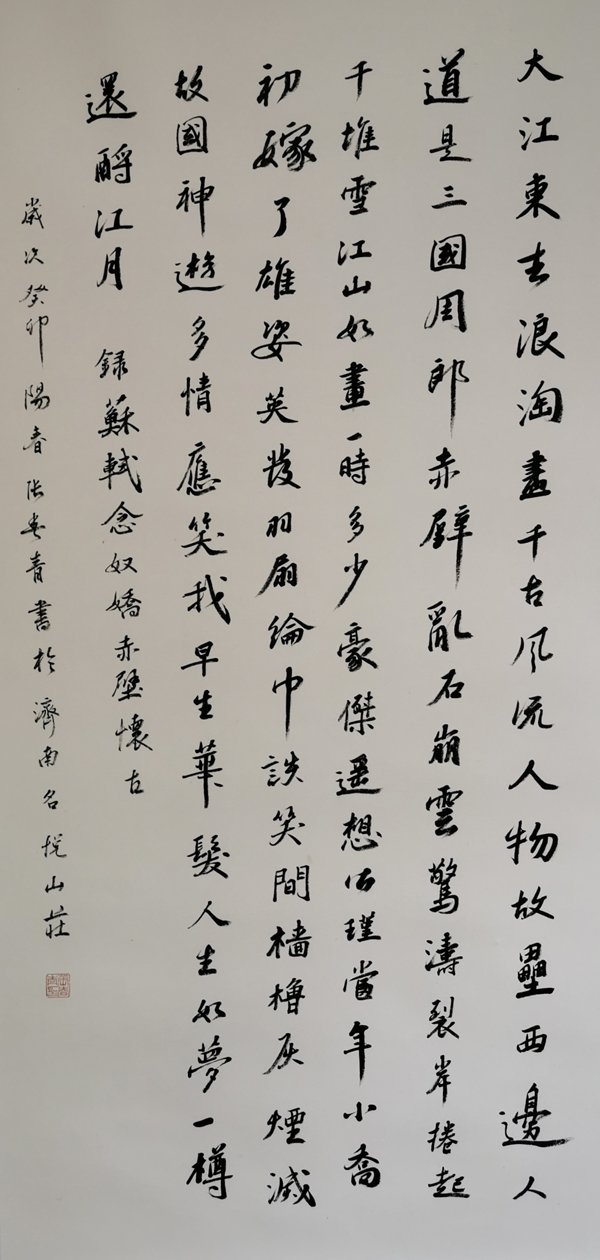 大江東去浪淘盡千古風流人物故壘西邊人
道是三國周郎赤壁亂石崩雲驚濤裂岸捲起
千堆雪江山如畫一時多少豪傑遥想公瑾當年小喬
初嫁了雄姿英發羽扇綸巾談笑間檣櫓灰煙滅
故國神遊多情應笑我早生華髮人生如夢一樽
還酹江月 録蘇軾念奴嬌赤壁懷古
歲次癸卯陽春張春青書於濟南名悅山莊